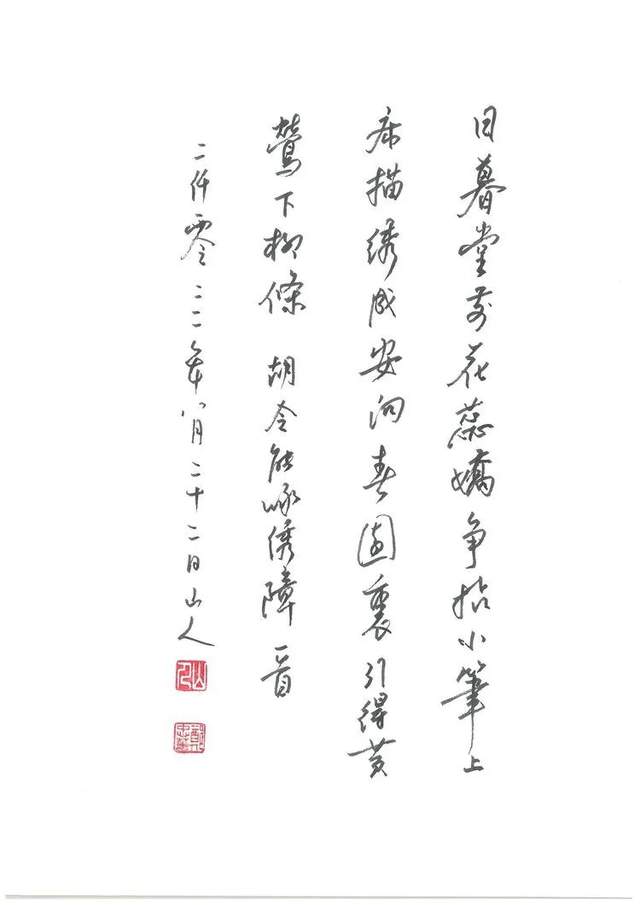 日暮堂前花蕊嬌争拈小筆上
床描绣成安向春園裏引得黄
鶯下柳條 胡令能咏绣障一首
二仟零二二年八月二十二日山人
山人